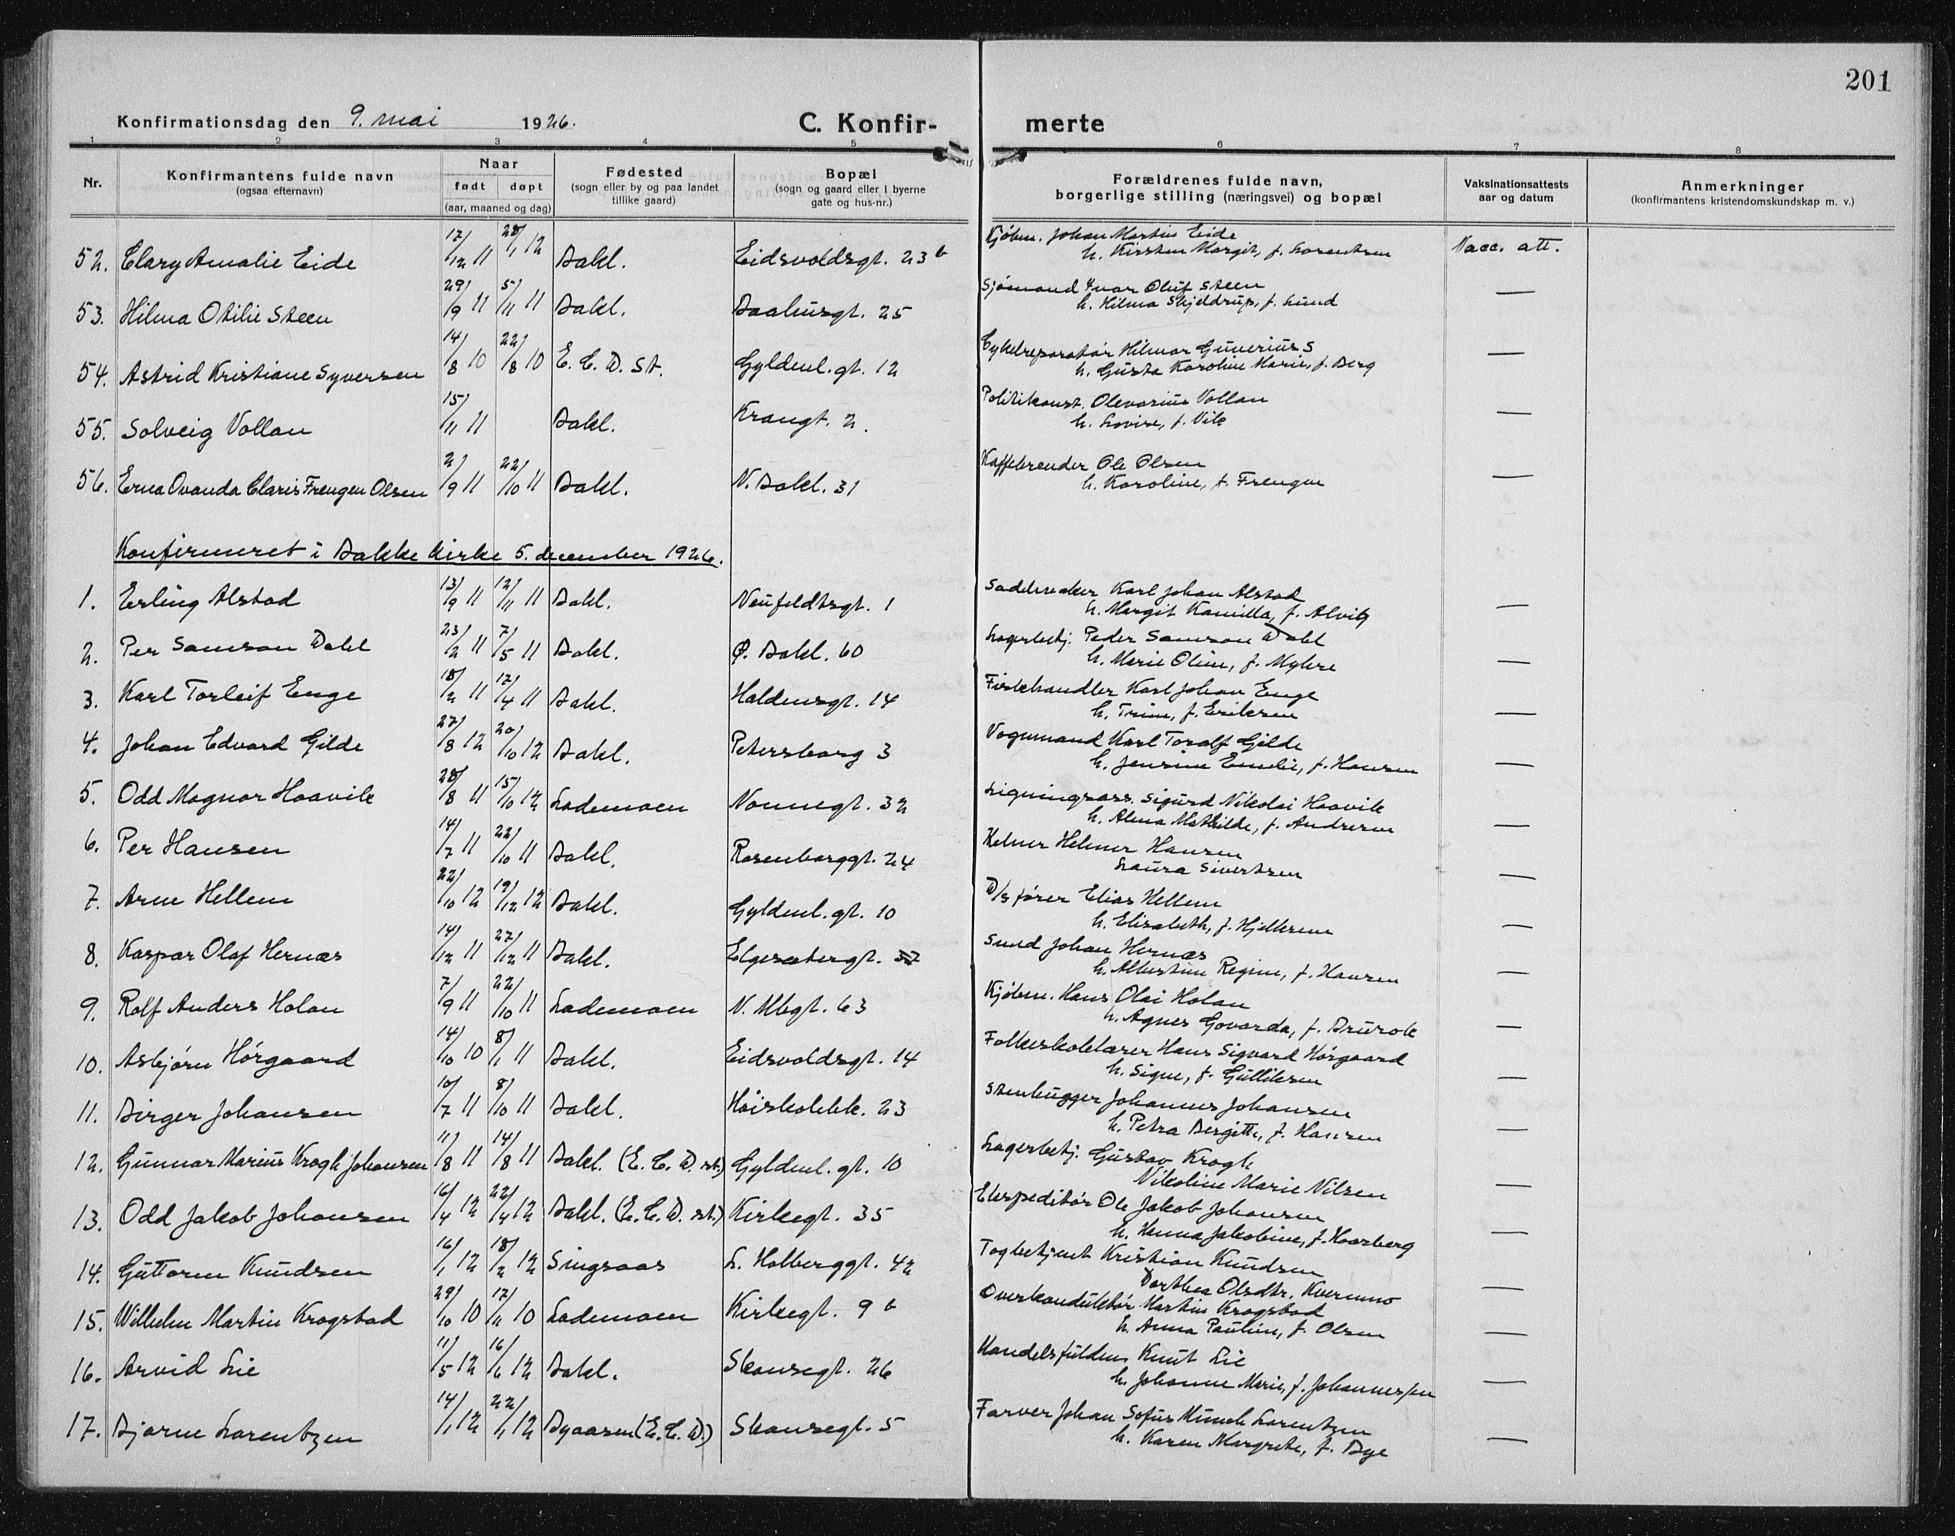 201
Konfirmationsdag den 9. mai 1926. C. Konfir- merte
1 2 3 4 5 6 7 8
Nr. Konfirmantens fulde navn (ogsaa efternavn) Naar født døpt (aar, maaned og dag) Fødested (sogn eller by og paa landet tillike gaard) Bopæl (sogn og gaard eller i byerne gate og hus-nr.) Forældrenes fulde navn, borgerlige stilling (næringsvei) og bopæl Vaksinationsattests aar og datum Anmerkninger (konfirmantens kristendomskundskap m. v.)
52. Clary Amalie Eide 17/12 11 28/1 12 Bakl. Eidsvoldsgt. 23b Kjøbm. Johan Martin Eide Vacc. att.
h. Kirsten Margit, f. Lorentsen
53. Hilma Otilie Steen 29/9 11 5/11 11 Bakl. Baahusgt. 25 Sjømand Ivar Oluf Steen —
h. Hilma Skjeldrup, f. Lund
54. Astrid Kristiane Syversen 14/8 10 22/8 10 E. C. D. St. Gyldenl. gt. 12 Cykelreparatør Hilmar Guverius S —
h. Gusta Karoline Marie, f. Berg
55. Solveig Vollan 15/11 11 Bakl. Krangt. 2. Politikonst. Olevarius Vollan —
h. Lovise, f. Vik
56. Erna Ovanda Claris Frengen Olsen 2/9 11 22/10 11 Bakl. N. Bakl. 31 Kaffebrender Ole Olsen —
h. Karoline, f. Frengen
Konfirmeret i Bakke kirke 5. december 1926.
1. Erling Alstad 13/9 11 12/11 11 Bakl. Neufeldtsgt. 1 Sadelmaker Karl Johan Alstad —
h. Margit Kamilla, f. Alvig
2. Per Samson Dahl 23/2 11 7/5 11 Bakl. Ø. Bakl. 60 Lagerbetj. Peder Samson Dahl —
h. Marie Oline, f. Myhre
3. Karl Torleif Enge 18/2 11 17/4 11 Bakl. Haldensgt. 14 Fiskehandler Karl Johan Enge —
h. Trine, f. Eriksen
4. Johan Edvard Gilde 27/8 12 20/10 12 Bakl. Petersborg 3 Vognmand Karl Toralf Gilde —
h. Jensine Emelie, f. Hansen
5. Odd Magnar Haavik 28/8 11 15/10 12 Lademoen Nonnegt. 32 Ligningsass. Sigurd Nikolai Haavik —
h. Alma Mathilde, f. Andresen
6. Per Hansen 14/7 11 22/10 11 Bakl. Rosenborggt. 24 Kelner Helmer Hansen —
Laura Sivertsen
7. Arne Hellem 22/10 12 19/12 12 Bakl. Gyldenl. gt. 10 D/s fører Elias Hellem —
h. Elisabeth, f. Hjelksem
8. Kaspar Olaf Hernæs 14/12 11 27/12 11 Bakl. Elgesætergt. Smed Johan Hernæs —
h. Albertine Regine, f. Hansen
9. Rolf Anders Holan 7/9 11 22/10 11 Lademoen N. Mbgt. 63 Kjøbm. Hans Olai Holan —
h. Agnes Govarda, f. Brurok
10. Asbjørn Hørgaard 14/10 10 8/1 11 Bakl. Eidsvoldsgt. 14 Folkeskolelærer Hans Sigvard Hørgaard —
h. Signe, f. Gulliksen
11. Birger Johansen 10/7 11 8/10 11 Bakl. Høiskolebk. 23 Stenhugger Johannes Johansen —
h. Petra Bergitte, f. Hansen
12. Gunnar Marius Krogh Johansen 11/8 11 14/8 11 Bakl. (E. C. D. st.) Gyldenl. gt. 10 Lagerbetj. Gustav Krogh —
Nikoline Marie Nilsen
13. Odd Jakob Johansen 16/4 12 22/4 12 Bakl. (E. C. D. st.) Kirkegt. 35 Ekspeditør Ole Jakob Johansen —
h. Hanna Jakobine, f. Haarberg
14. Guttorm Knudsen 16/1 12 18/2 12 Singsaas L. Holberggt. 42 Togbetjent Kristian Knudsen —
Dorthea Olsdtr. Kvernmo
15. Wilhelm Martin Krogstad 29/10 10 17/11 10 Lademoen Kirkegt. 9 b Overkonduktør Martin Krogstad —
h. Anna Pauline, f. Olsen
16. Arvid Lie 11/5 12 16/6 12 Bakl. Skansegt. 26 Handelsfuldm. Knut Lie —
h. Johanne Marie, f. Johannessen
17. Bjarne Lorentzen 14/1 12 22/1 12 Byaasen (E. C. D.) Skansegt. 5 Farver Johan Sofus Munch Lorentzen —
h. Karen Margrete, f. Bye